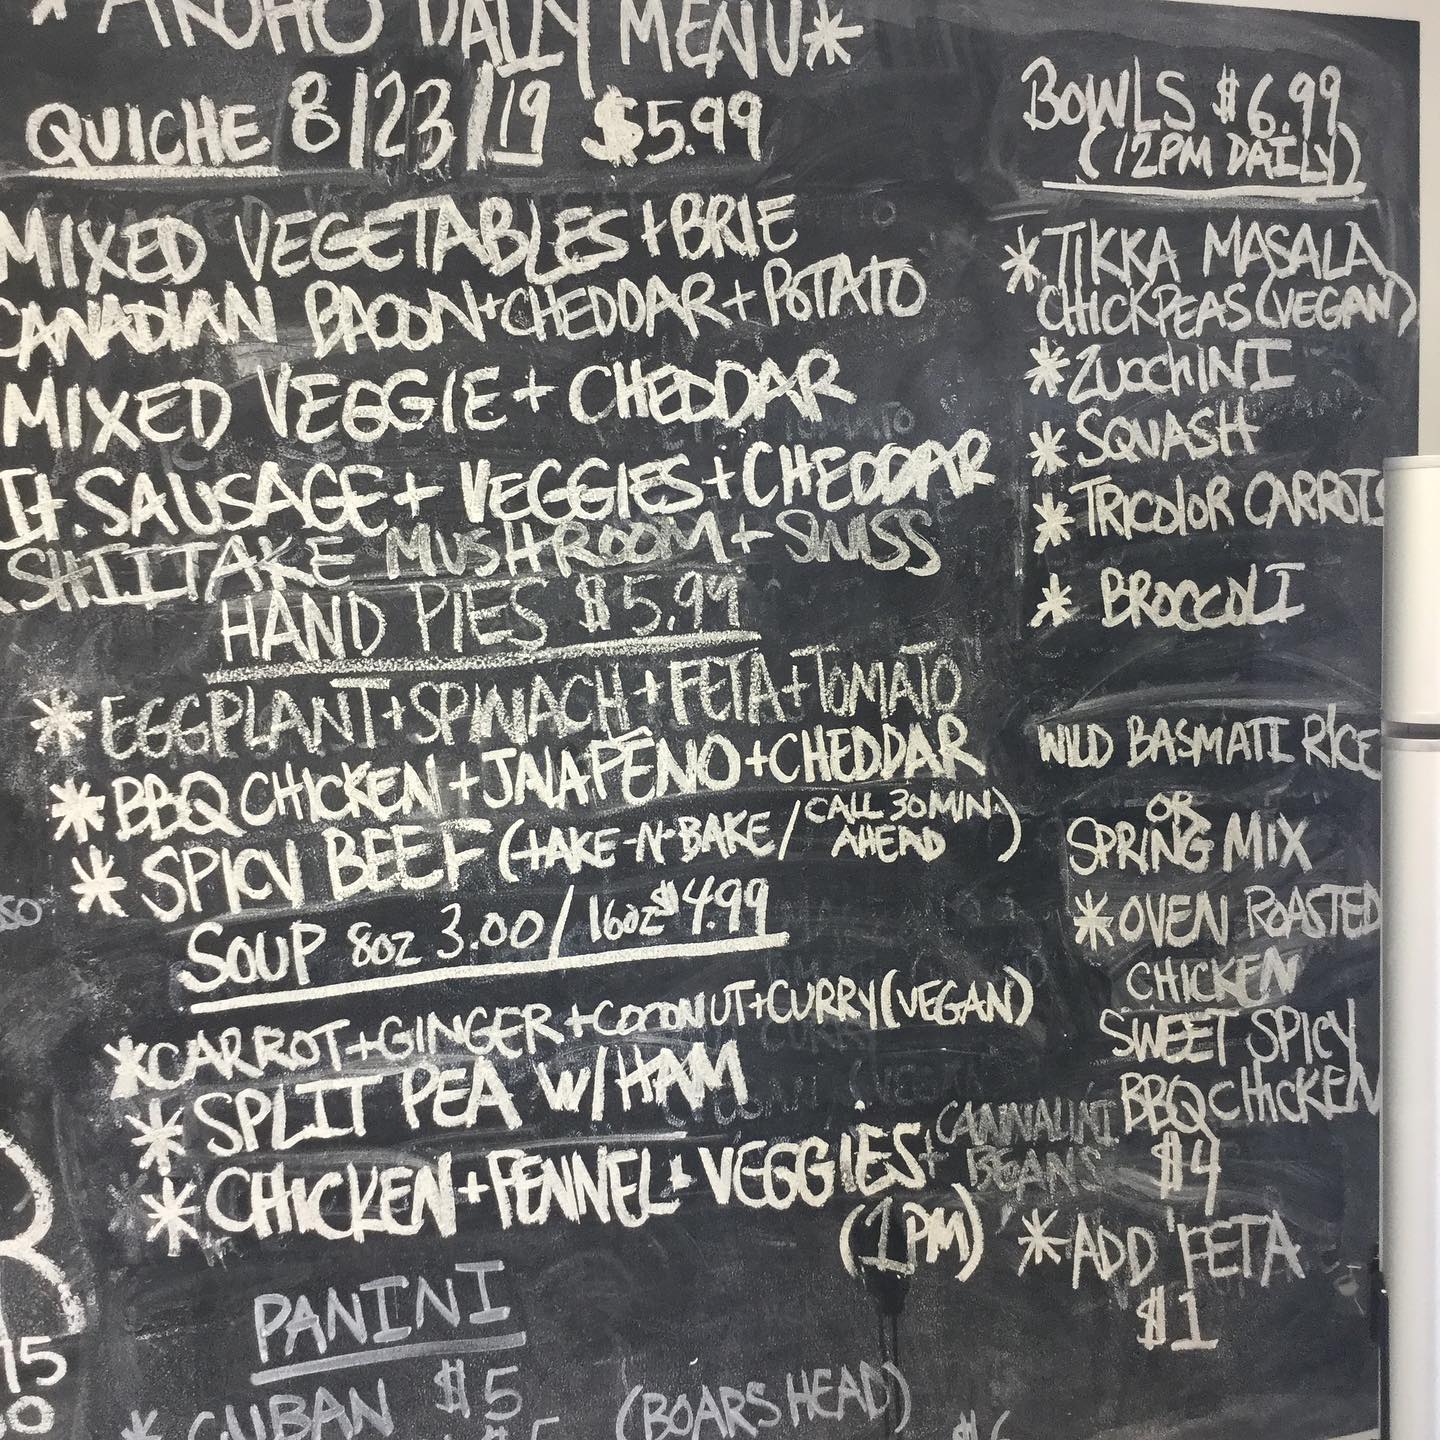 DAILY MENU*
QUICHE 8/23/19 $5.99
MIXED VEGETABLES + BRIE
CANADIAN BACON + CHEDDAR + POTATO
MIXED VEGGIE + CHEDDAR
IT. SAUSAGE + VEGGIES + CHEDDAR
SHIITAKE MUSHROOM + SWISS
HAND PIES $5.99
* EGGPLANT + SPINACH + FETA + TOMATO
* BBQ CHICKEN + JALAPEÑO + CHEDDAR
* SPICY BEEF (TAKE-N-BAKE / CALL 30 MIN. AHEAD)
SOUP 8oz 3.00 / 16oz $4.99
* CARROT + GINGER + COCONUT + CURRY (VEGAN)
* SPLIT PEA W/ HAM
* CHICKEN + FENNEL + VEGGIES + CANNALINI BEANS
(1PM)
PANINI
* CUBAN $5 (BOARS HEAD)
$6
BOWLS $6.99
(12PM DAILY)
* TIKKA MASALA
CHICKPEAS (VEGAN)
* ZUCCHINI
* SQUASH
* TRICOLOR CARROTS
* BROCCOLI
WILD BASMATI RICE
OR
SPRING MIX
* OVEN ROASTED
CHICKEN
SWEET SPICY
BBQ CHICKEN
$4
* ADD FETA
$1
15